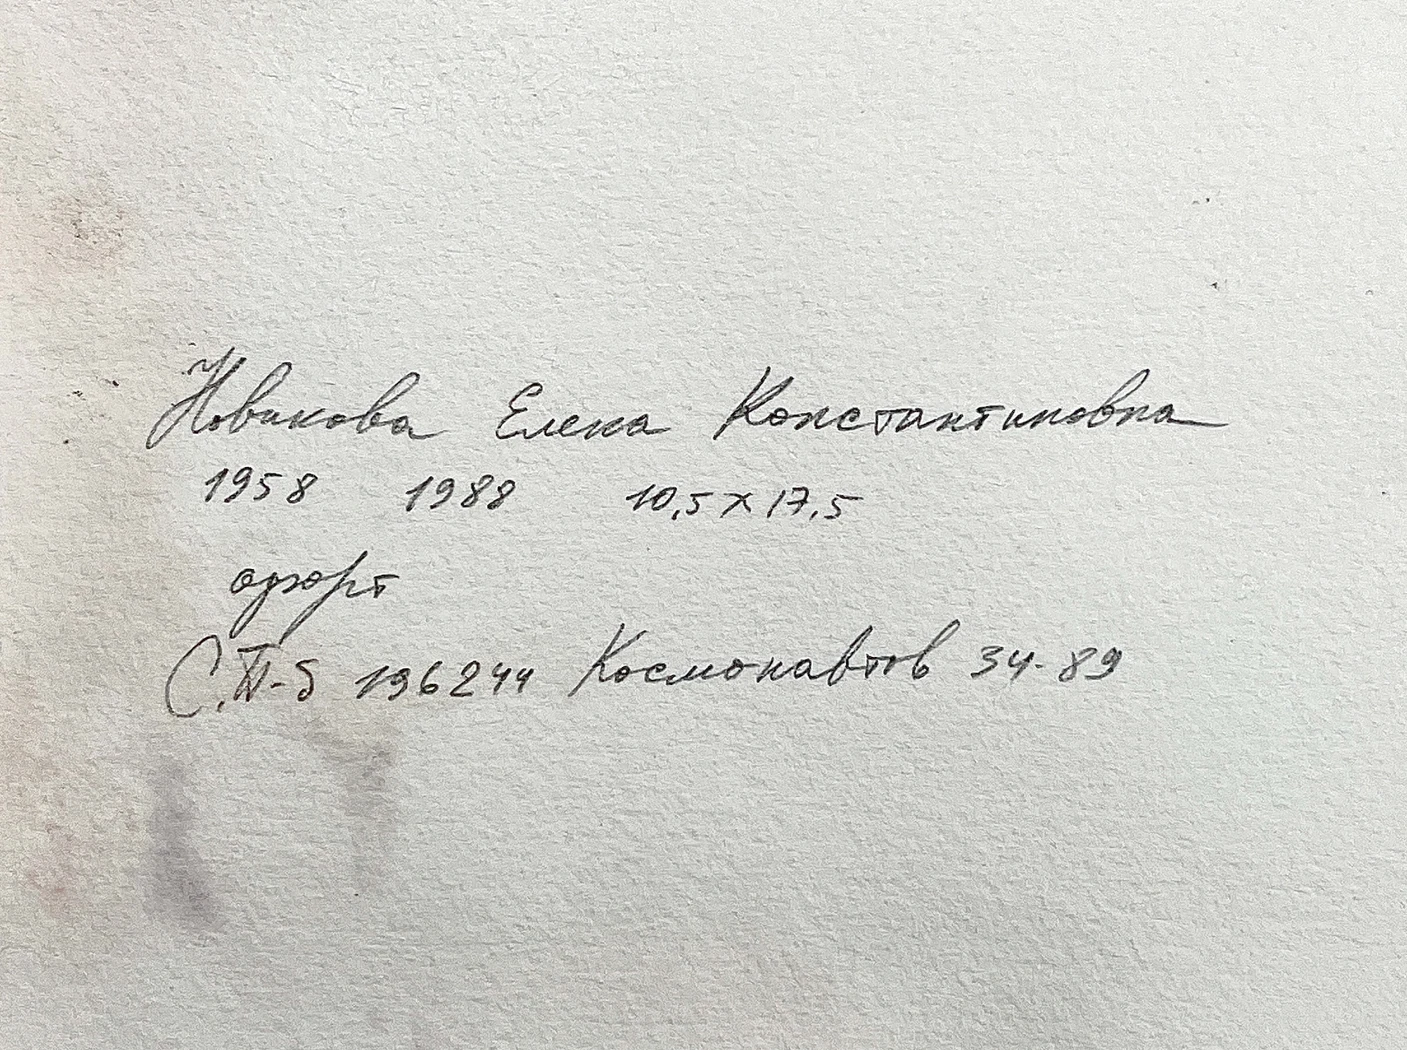 Новикова Елена Константиновна
1958 1988 10,5 x 17,5
офорт
С.П-б 196244 Космонавтов 34-89